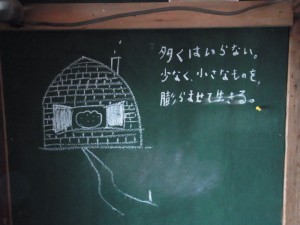 多くはいらない。
少なく、小さなものを、
膨らませて生きる。